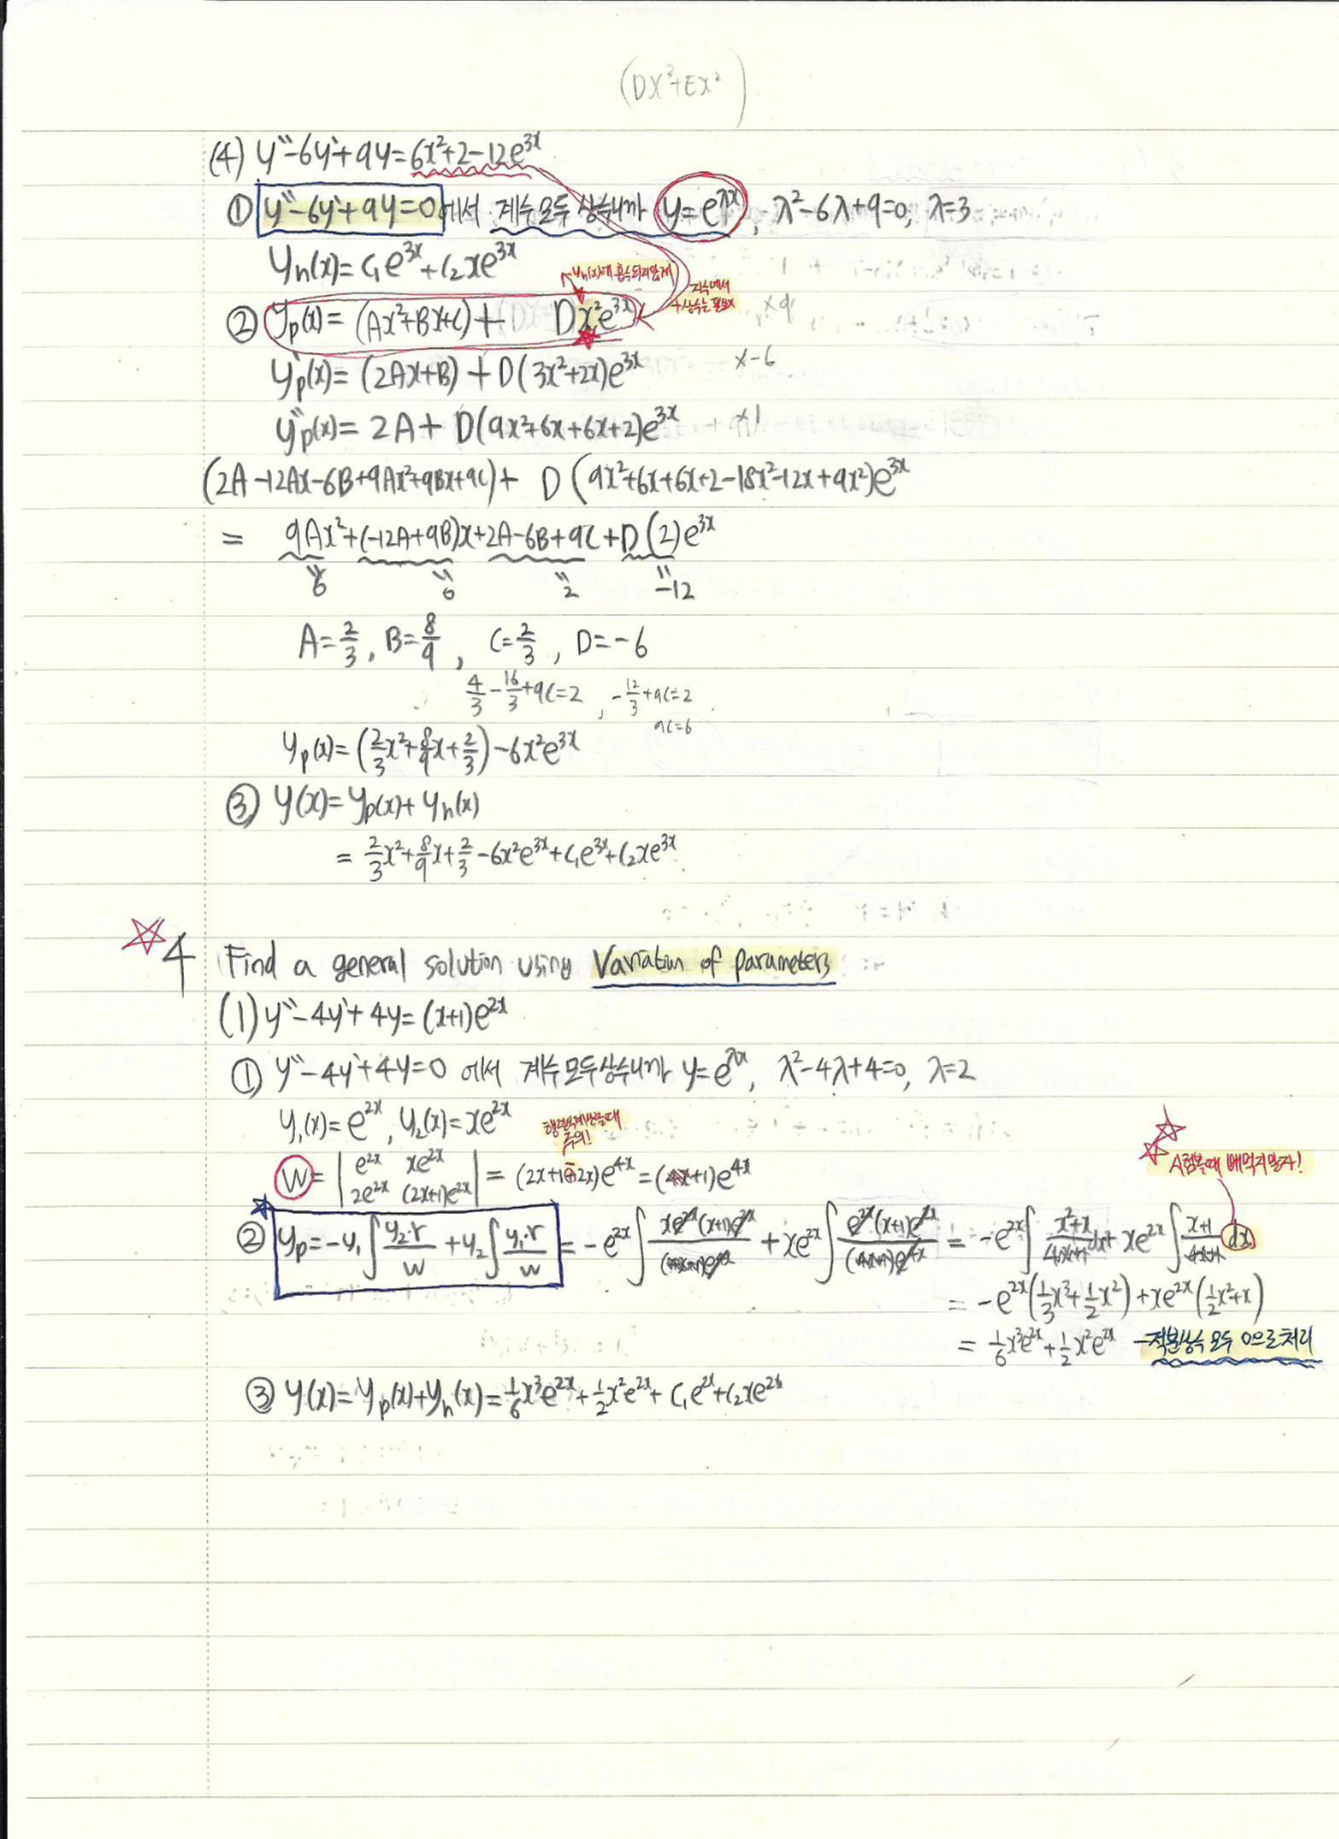 (Dx³+Ex²)
(4) y''-6y'+9y=6x²+2-12e^{3x}
① y''-6y'+9y=0 에서 계수 모두 상수니까 y=e^{λx}, λ²-6λ+9=0, λ=3
y_h(x)=c₁e^{3x}+c₂xe^{3x}
y_h(x)에 흡수되지않게
지수에서
상수는 필요x
② y_p(x)=(Ax²+Bx+C)+ Dx²e^{3x}
y_p'(x)=(2Ax+B)+D(3x²+2x)e^{3x} x-6
y_p''(x)=2A+D(9x²+6x+6x+2)e^{3x} x1
(2A-12Ax-6B+9Ax²+9Bx+9C)+ D(9x²+6x+6x+2-18x²-12x+9x²)e^{3x}
= 9Ax²+(-12A+9B)x+2A-6B+9C+D(2)e^{3x}
6 0 2 -12
A=2/3, B=8/9, C=2/3, D=-6
4/3-16/3+9C=2, -12/3+9C=2
9C=6
y_p(x)=(2/3x²+8/9x+2/3)-6x²e^{3x}
③ y(x)=y_p(x)+y_h(x)
=2/3x²+8/9x+2/3-6x²e^{3x}+c₁e^{3x}+c₂xe^{3x}
☆4 Find a general solution using Variation of parameters
(1) y''-4y'+4y=(x+1)e^{2x}
① y''-4y'+4y=0 에서 계수 모두 상수니까 y=e^{λx}, λ²-4λ+4=0, λ=2
y₁(x)=e^{2x}, y₂(x)=xe^{2x}
행렬식계산할때
주의!
W=|e^{2x} xe^{2x}; 2e^{2x} (2x+1)e^{2x}|=(2x+1-2x)e^{4x}=(+1)e^{4x}
시험볼때 빼먹지말자!
② y_p=-y₁∫y₂·r/W+y₂∫y₁·r/W=-e^{2x}∫xe^{2x}(x+1)e^{2x}/(4x+1)e^{4x}+xe^{2x}∫e^{2x}(x+1)e^{2x}/(4x+1)e^{4x}=-e^{2x}∫x²+x/4x+1 dx+xe^{2x}∫x+1/4x+1 dx
=-e^{2x}(1/3x³+1/2x²)+xe^{2x}(1/2x²+x)
=1/6x³e^{2x}+1/2x²e^{2x} -적분상수 모두 0으로 처리
③ y(x)=y_p(x)+y_h(x)=1/6x³e^{2x}+1/2x²e^{2x}+c₁e^{2x}+c₂xe^{2x}